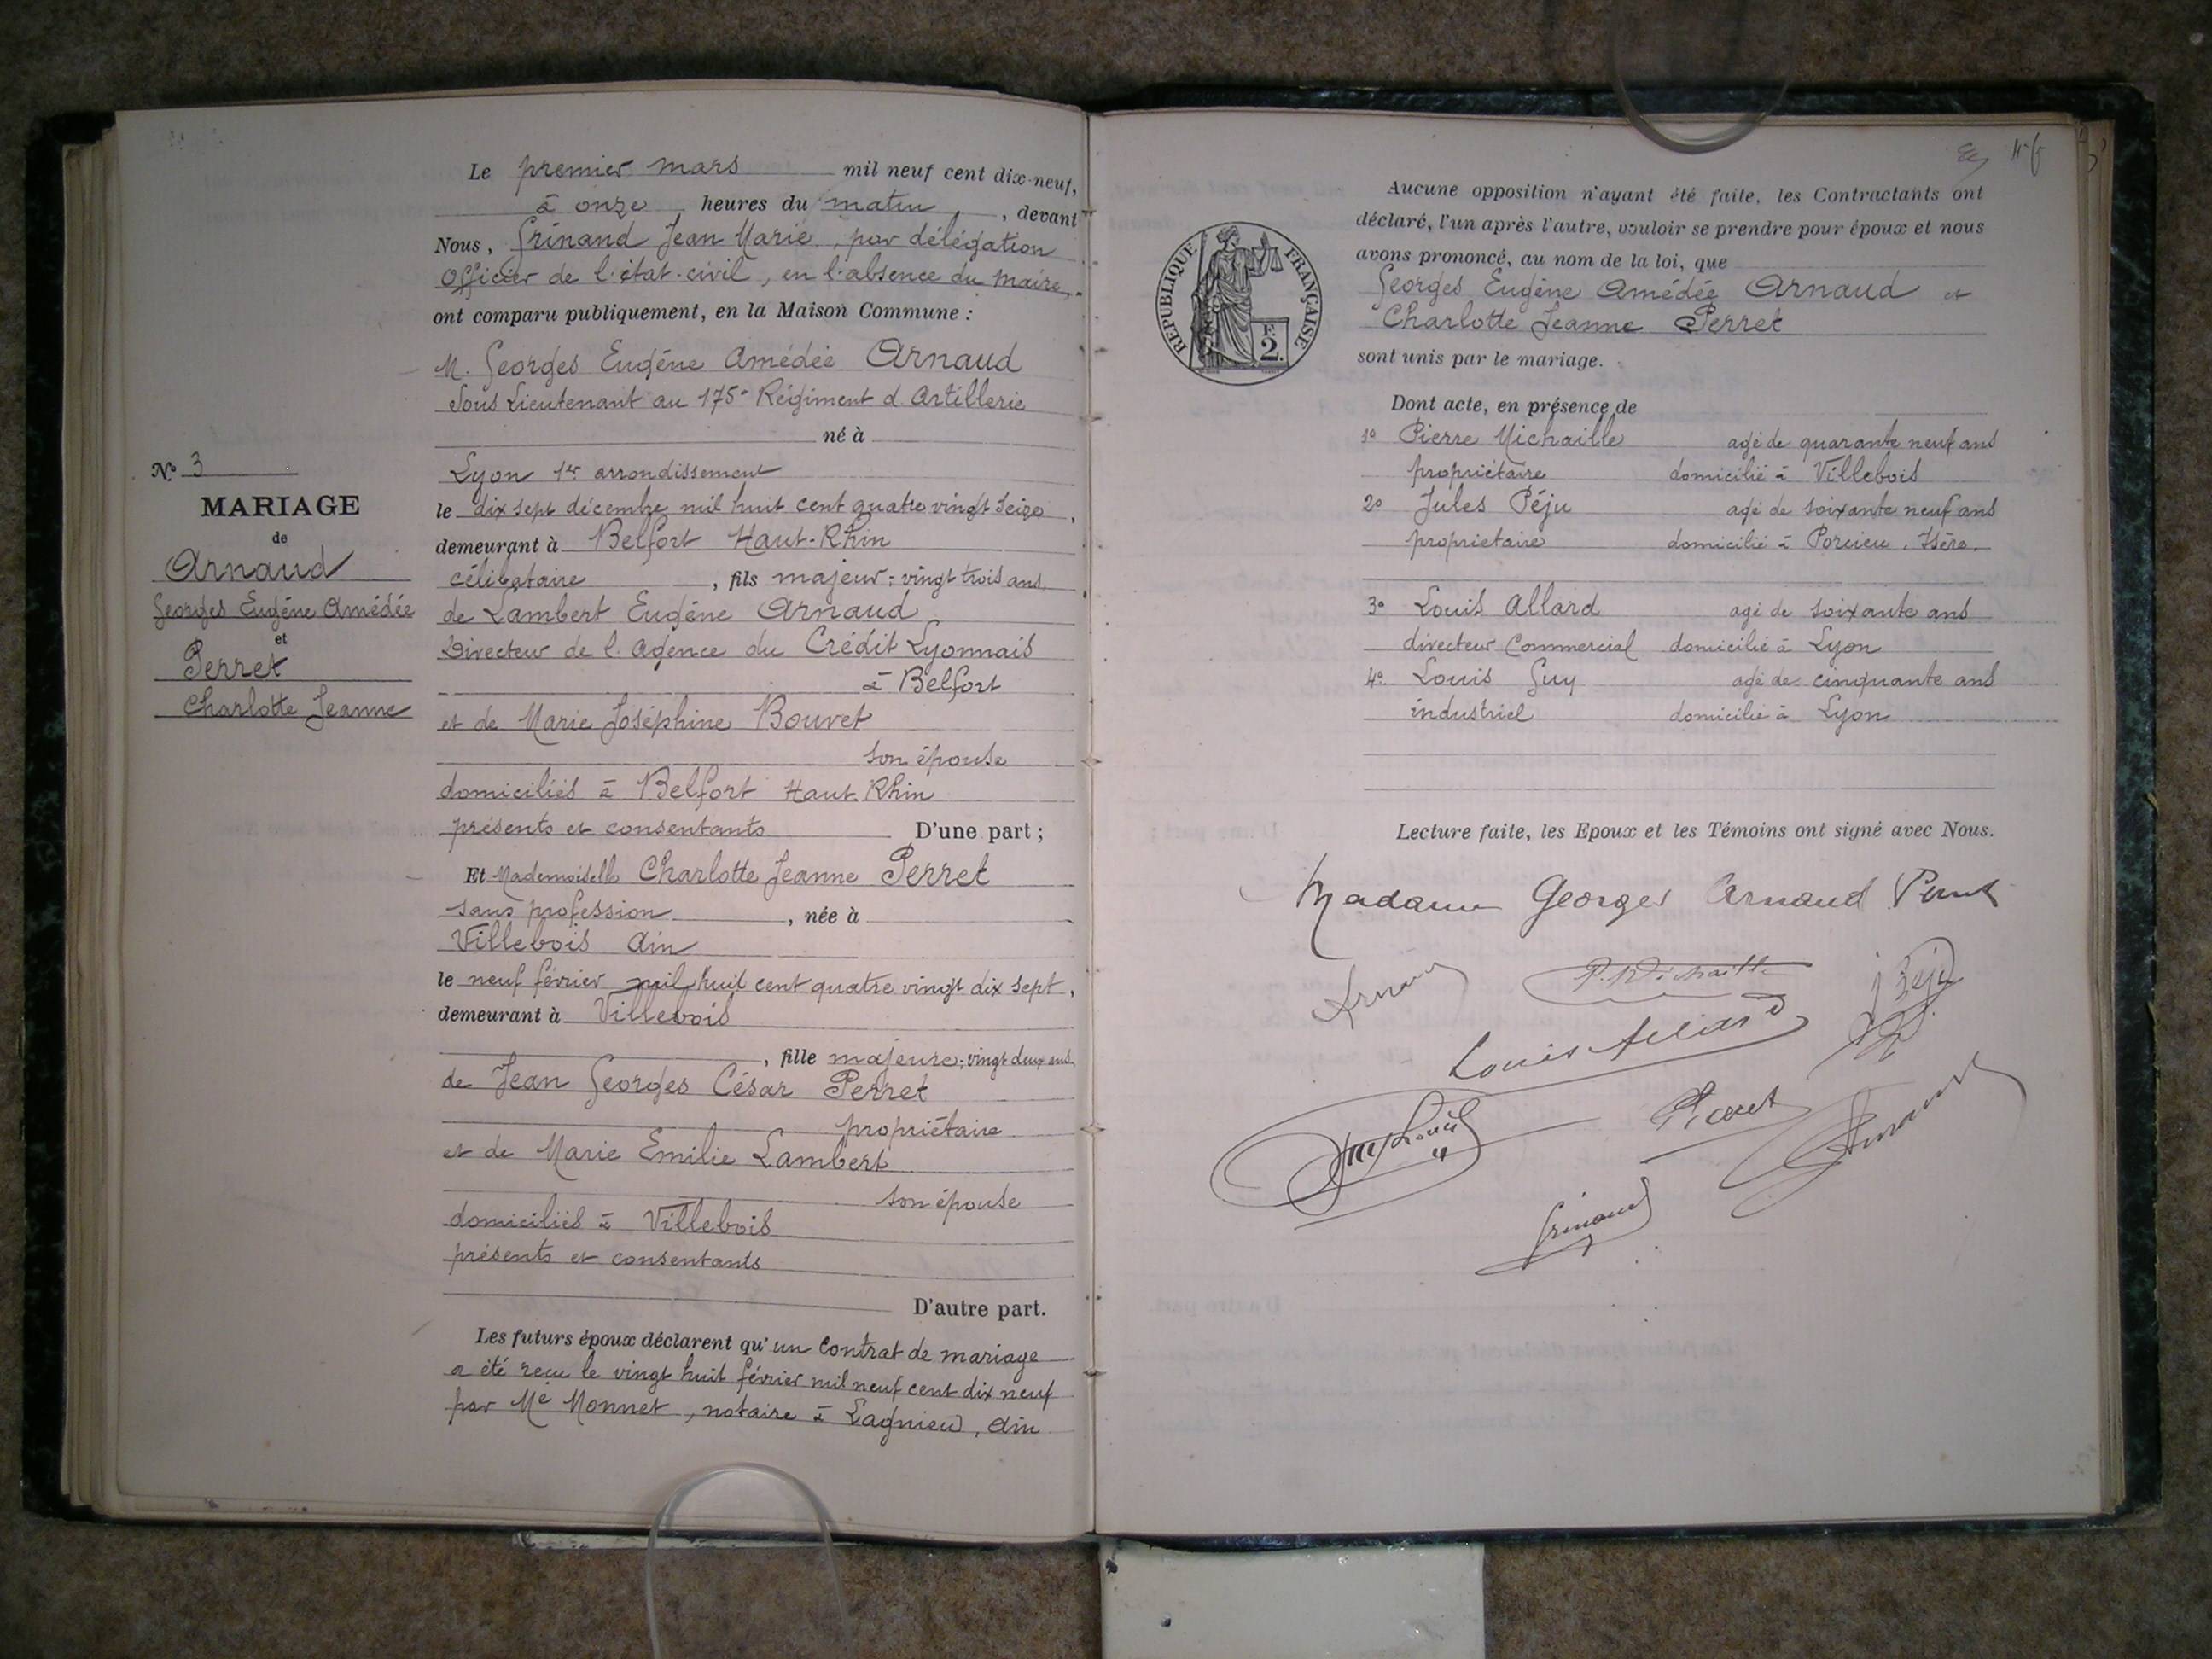 Le premier mars mil neuf cent dix-neuf,
à onze heures du matin, devant
Nous, Grinand Jean Marie, par délégation
Officier de l'état-civil, en l'absence du Maire,
ont comparu publiquement, en la Maison Commune :
M. Georges Eugène Amédée Arnaud
Sous Lieutenant au 175e Régiment d'Artillerie
né à
Lyon 1er arrondissement
le dix sept décembre mil huit cent quatre vingt seize,
demeurant à Belfort Haut-Rhin
célibataire, fils majeur : vingt trois ans
de Lambert Eugène Arnaud
Directeur de l'Agence du Crédit Lyonnais
à Belfort
et de Marie Joséphine Bouvet
son épouse
domiciliés à Belfort Haut-Rhin
présents et consentants D'une part ;
Et Mademoiselle Charlotte Jeanne Perret
sans profession, née à
Villebois Ain
le neuf février mil huit cent quatre vingt dix sept,
demeurant à Villebois
, fille majeure : vingt deux ans
de Jean Georges César Perret
propriétaire
et de Marie Emilie Lambert
son épouse
domiciliés à Villebois
présents et consentants
D'autre part.
Les futurs époux déclarent qu'un Contrat de mariage
a été reçu le vingt huit février mil neuf cent dix neuf
par Me Monnet, notaire à Lagnieu, Ain
No 3
MARIAGE
de
Arnaud
Georges Eugène Amédée
et
Perret
Charlotte Jeanne
RÉPUBLIQUE FRANÇAISE
F.
2.
Aucune opposition n'ayant été faite, les Contractants ont
déclaré, l'un après l'autre, vouloir se prendre pour époux et nous
avons prononcé, au nom de la loi, que
Georges Eugène Amédée Arnaud et
Charlotte Jeanne Perret
sont unis par le mariage.
Dont acte, en présence de
1o Pierre Michaille agé de quarante neuf ans
propriétaire domicilié à Villebois
2o Jules Péju agé de soixante neuf ans
propriétaire domicilié à Porcieu, Isère.
3o Louis Allard agé de soixante ans
directeur Commercial domicilié à Lyon
4o Louis Guy agé de cinquante ans
industriel domicilié à Lyon
Lecture faite, les Epoux et les Témoins ont signé avec Nous.
Madame Georges Arnaud Perret
Arnaud P. Michaille J Péju
Louis Allard
Guy Louis Perret Arnaud
Grinand